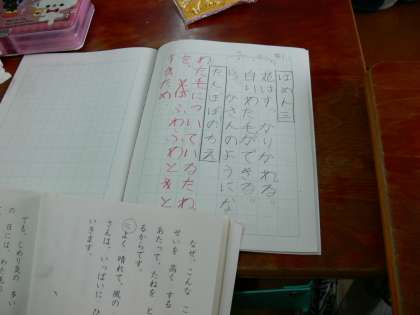 ばめん三
花はすっかりかれる。
白いわた毛ができる。
らっかさんのようにな
たんぽぽのちえ
わた毛についているたね
を、ふわふわと
ため
なぜ、こんな こ
せいを 高く する
あたって、たねを と
るからです。
よく 晴れて、風の
さんは、いっぱいに ひ
いきます。
でも、しめり気の 多い
の 日には、わた毛